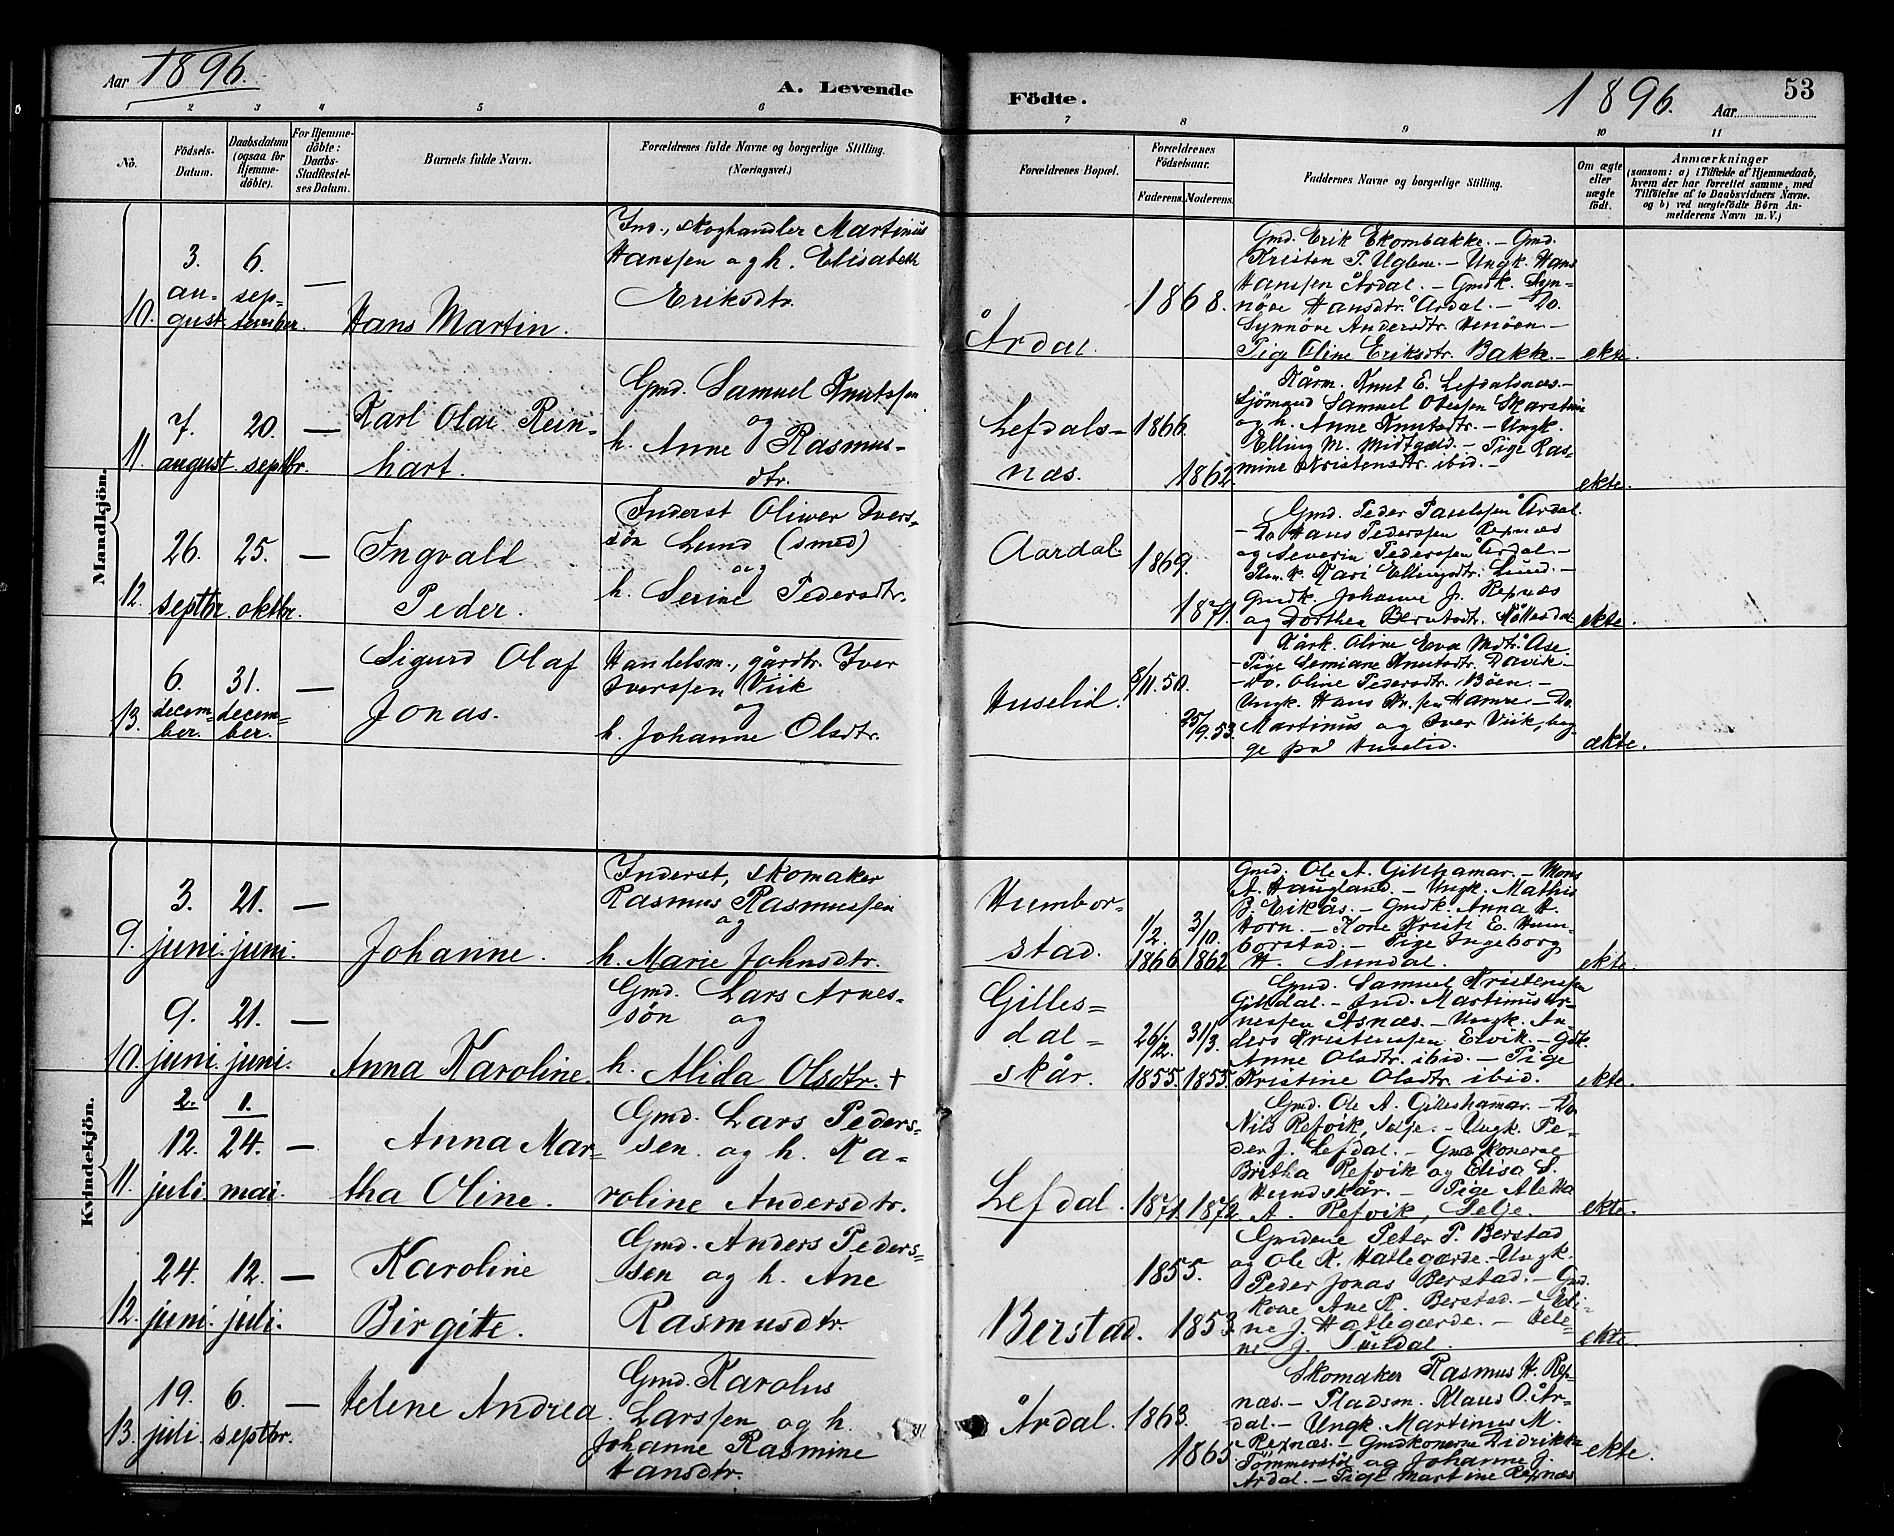 Aar 1896.
A. Levende Födte.
1896. Aar
53
2 3 4 5 6 7 8 9 10 11
No.
Födsels-
Datum.
Daabsdatum
(ogsaa for
Hjemme-
döbte).
For Hjemme-
döbte:
Daabs-
Stadfestel-
ses Datum.
Barnets fulde Navn.
Forældrenes fulde Navne og borgerlige Stilling.
(Næringsvei.)
Forældrenes Bopæl.
Forældrenes
Födselsaar.
Faderens. Moderens.
Faddernes Navne og borgerlige Stilling.
Om ægte
eller
uægte
födt.
Anmærkninger
(saasom: a) i Tilfælde af Hjemmedaab,
hvem der har forrettet samme, med
Tilföielse af to Daabsvidners Navne.
og b) ved uægtefödte Börn An-
melderens Navn m. V.)
Mandkjön.
10. 3. august 6. september. —
Hans Martin.
Ind., skoghandler Martinus
Hanssen og h. Elisabeth
Eriksdtr.
Årdal.
1868.
Gmd. Erik Ekombakke. — Gmd.
Kristen P. Uglene. — Ungk. Hans
Hanssen Årdal. — Gmdk. Syn-
növe Hansdtr. Årdal. — Do.
Synnöve Andersdtr. Henöen. —
Pige Oline Eriksdtr. Bakke. —
ekte.
11. 7. august 20. septbr. —
Karl Olai Rein-
hart.
Gmd. Samuel Knutssen
og
h. Anne Rasmus-
dtr.
Lefdals-
næs.
1866.
1862.
Kårm. Knut E. Lefdalsnæs. —
Sjömand Samuel Olessen
og h. Anne Knutsdtr. — Ungk.
Elling M. Midtgård. — Pige Ras-
mine Kristensdtr. ibid. —
ekte.
12. 26. septbr. 25. oktbr. —
Ingvald
Peder.
Inderst Oliver Ivers-
sön Lund (smed)
og
h. Serine Pedersdtr.
Aardal.
1869.
1871.
Gmd. Peder Paulssen Årdal.
— Do Hans Pederssen Rexnæs
og Severin Pederssen Årdal. —
Kari Ellingsdtr. Lund. —
Gmdk. Johanne J. Rexnæs
og Dorthea Berntsdtr.
ekte.
13. 6. december. 31. december. —
Sigurd Olaf
Jonas.
Handelsm., gårdbr. Iver
Iverssen Viik
og
h. Johanne Olsdtr.
Huselid.
8/11.50.
25/9.53.
Kårk. Oline Ewa Mdtr. Åse.
— Pige Semiane Knutsdtr. Davik. —
— Do. Oline Pedersdtr. Böen. —
Ungk. Hans Kr. sen Hamre. — Do
Martinus og Iver Viik, beg-
ge på Huselid.
ekte.
Kvindekjön.
9. 3. juni. 21. juni. —
Johanne.
Inderst, skomaker
Rasmus Rasmussen
og
h. Marie Johnsdtr.
Humbor-
stad.
1/2.
1866
3/10.
1862
Gmd. Ole A. Gilleshamar. — Mons
A. Haugland. — Ungk. Mathis
B. Eikås. — Gmdk. Anna H.
Horn. — Kone Kristi E. Hum-
borstad. — Pige Ingeborg
H. Sundal.
ekte.
10. 9. juni. 21. juni. —
Anna Karoline.
Gmd. Lars Arnes-
sön og
h. Alida Olsdtr. +
Gilles-
dal-
skår.
26/12.
1855.
31/3.
1855.
Gmd. Samuel Kristenssen
Gilsdal. — Ind. Martinus Ar-
nessen Åsnæs. — Ungk. An-
ders Kristenssen Elvik. — Gdk.
Anne Olsdtr. ibid. — Pige
Kristine Olsdtr. ibid.
ekte.
11. 2. 12. juli. 1. 24. mai. —
Anna Mar-
tha Oline.
Gmd. Lars Peders-
sen og h. Ka-
roline Andersdtr.
Lefdal.
1871.
1872.
Gmd. Ole A. Gilleshamar. — Do
Nils Refvik, Selje. — Ungk. Pe-
der J. Lefdal. — Gmd konerne
Britha Refvik og Elisa S.
Hundskår. — Pige Aletta
A. Refvik, Selje.
ekte.
12. 24. juni. 12. juli. —
Karoline
Birgitte.
Gmd. Anders Peders-
sen og h. Ane
Rasmusdtr.
Berstad.
1855.
1853.
Gmdene Peter P. Berstad
og Ole K. Hallegærde. — Ungk.
Peder Jonas Berstad. — Gmd.
kone Ane R. Berstad. — Eli-
ne J. Hallegærde. — Hele-
ne J.
ekte.
13. 19. juli. 6. septbr. —
Helene Andrea.
Gmd. Karolus
Larssen og h.
Johanne Rasmine
Hansdtr.
Årdal.
1863.
1865.
Skomaker Rasmus H. Rex-
næs. — Pladsm. Klaus O. År-
dal. — Ungk. Martinus M.
Rexnæs. — Gmdkonerne Didrikke
Tömmerstöl og Johanne J.
Årdal. — Pige Martine Rexnæs
ekte.